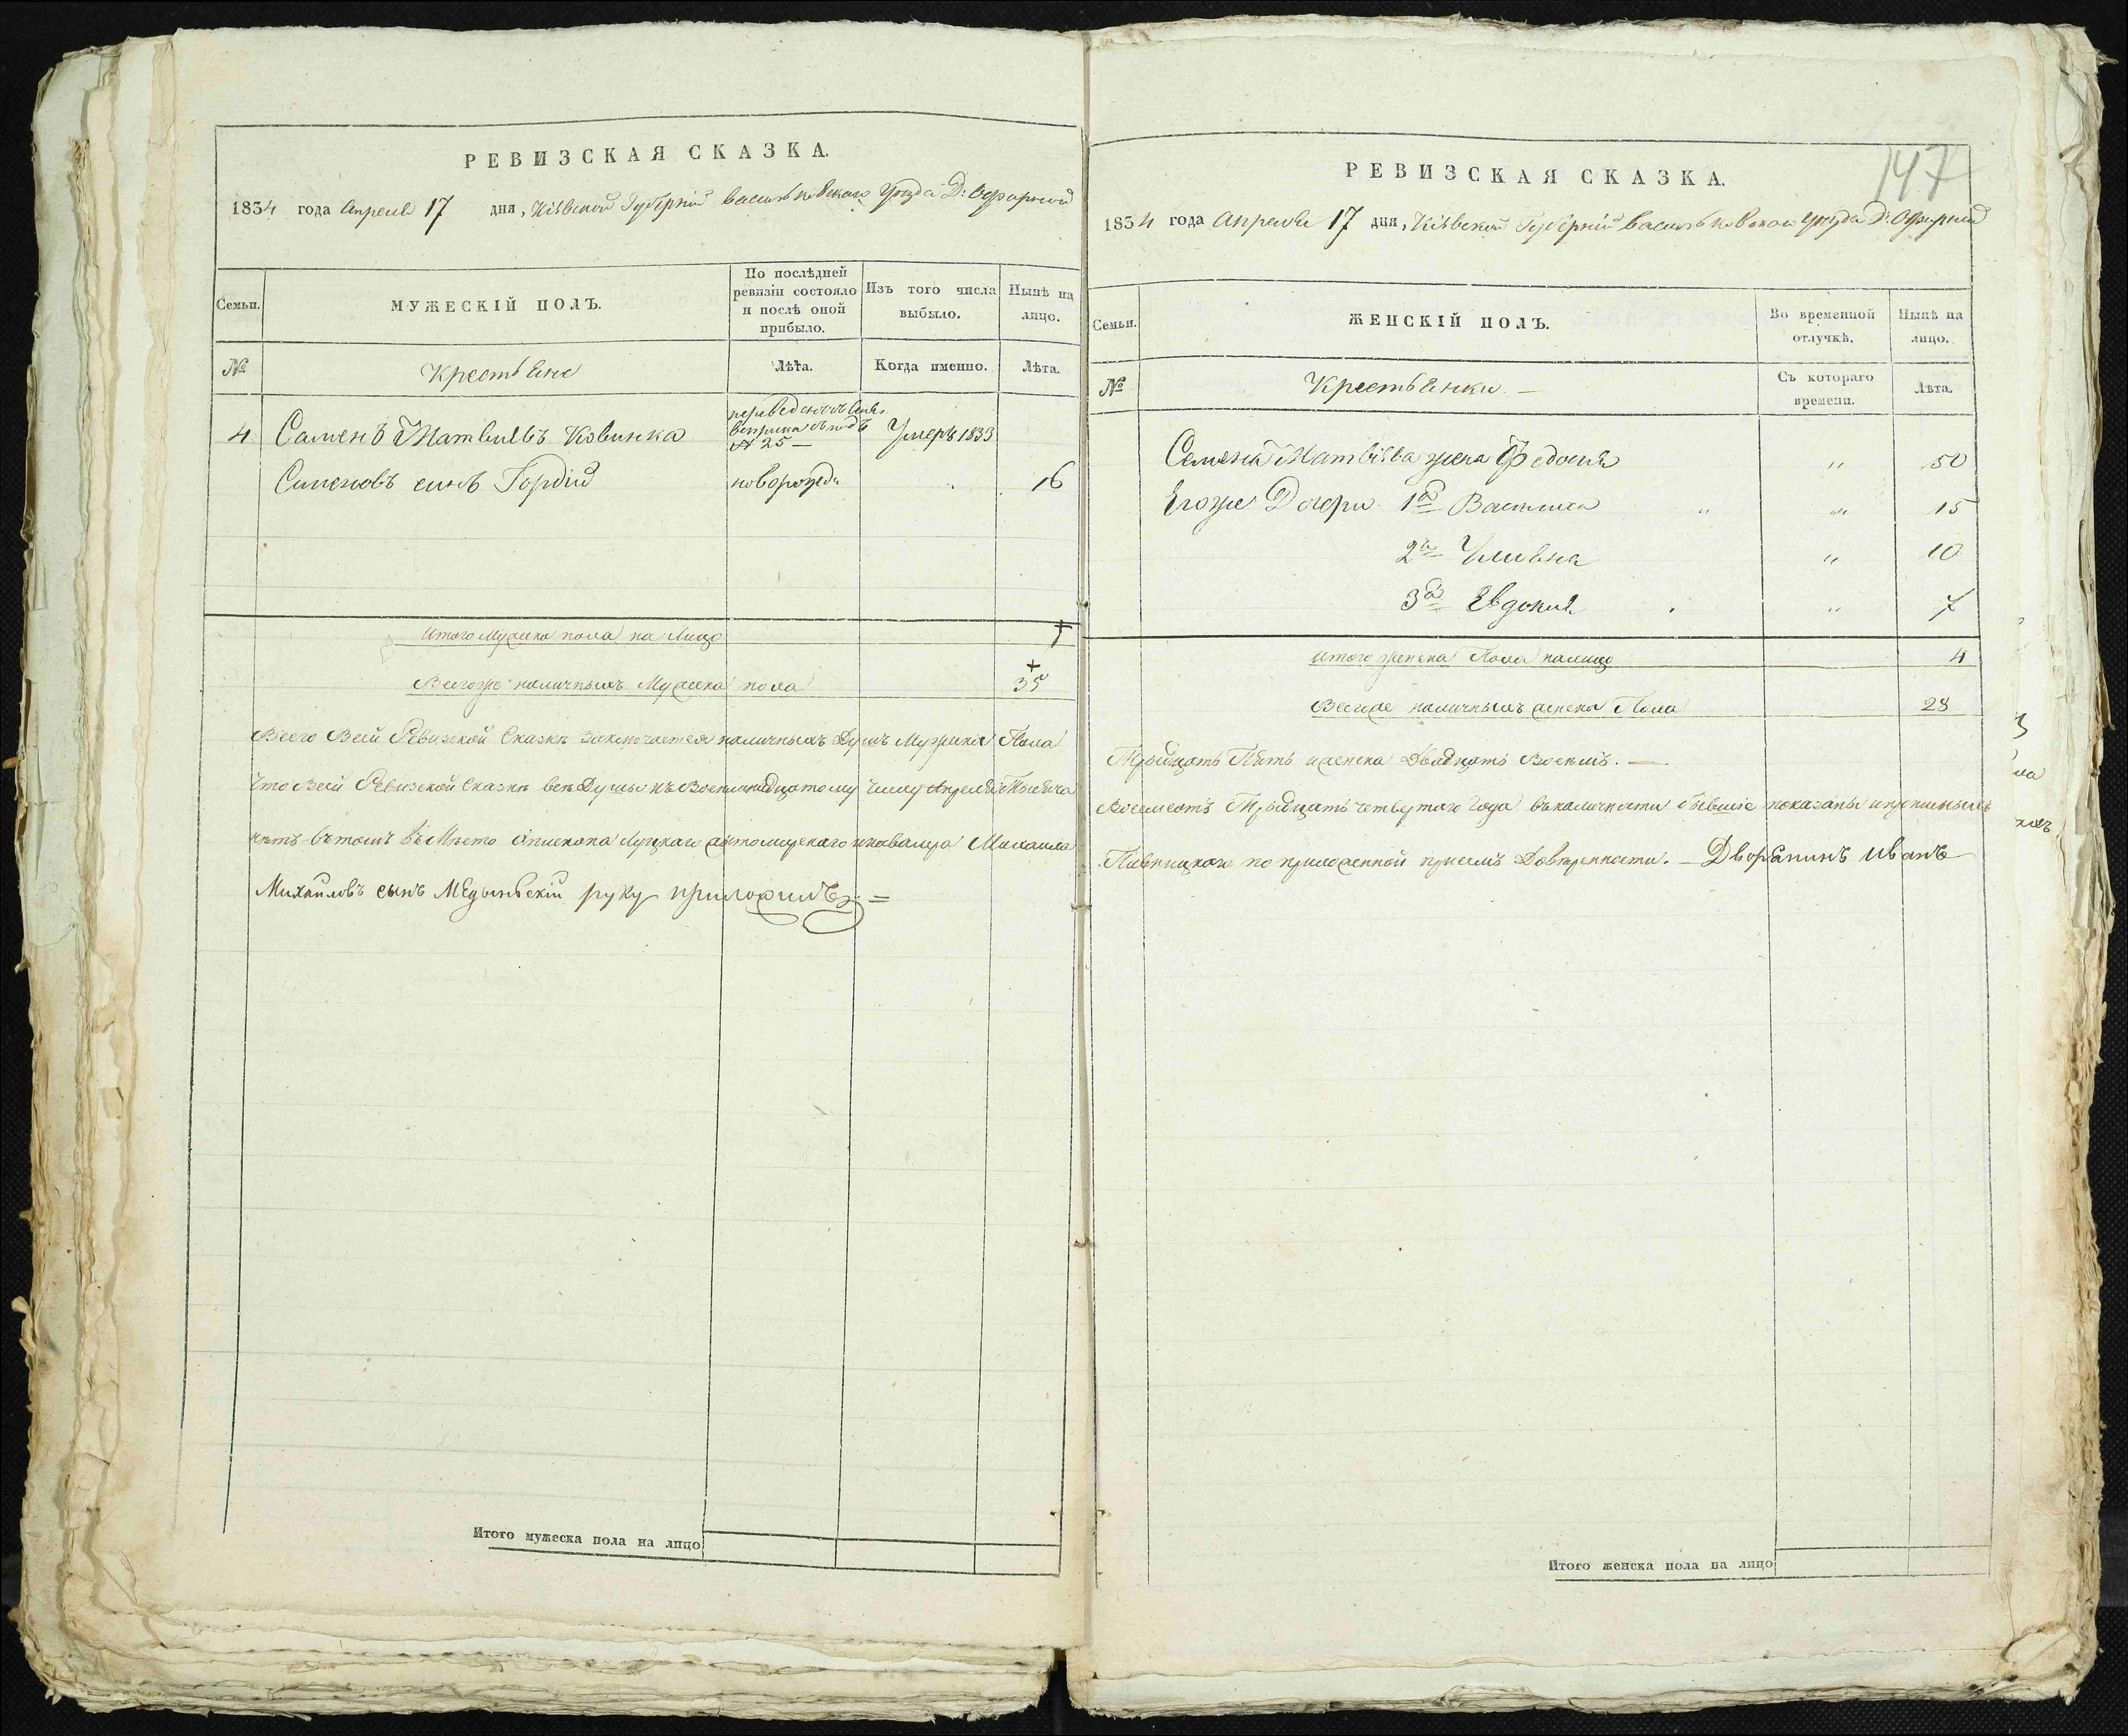 РЕВИЗСКАЯ СКАЗКА.
1834 года Апреля 17 дня, Кіевской Губерніи Васильковскаго Уезда Д: Офирной
Семьи.
МУЖЕСКІЙ ПОЛЪ.
По послѣдней
ревизіи состояло
и послѣ оной
прибыло.
Изъ того числа
выбыло.
Нынѣ на
лицо.
№
Крестьяне
Лѣта.
Когда именно.
Лѣта.
переведенъ
съ подъ
4 Семенъ Матвиевъ Ковинка № 25 — Умеръ 1833
Сименовъ синъ Гордій новорожед: 16
Итого Мужска пола на Лицо 1
Всегоже наличныхъ Мужска пола 35
Всего Всей Ревизской Сказкѣ заключается наличныхъ Душъ Мужска Пола
Что Всей Ревизской Сказкѣ всѣ Души къ Восемнадцатому числу Апреля Тысяча
нѣтъ вътомъ въМѣсто Епископа Луцкаго Житомирскаго икавалера Михаила
Михайловъ сынъ Медыньскій руку приложилъ: =
Итого мужеска пола на лицо
147
РЕВИЗСКАЯ СКАЗКА.
1834 года Апреля 17 дня, Кіевской Губерніи Васильковскаго Уезда Д: Офирной
Семьи.
ЖЕНСКІЙ ПОЛЪ.
Во временной
отлучкѣ.
Нынѣ на
лицо.
№
Крестьянки. —
Съ котораго
времени.
Лѣта.
Семена Матвіева жена Федосия " 50
Егоже Дочери 1я Василиса " " 15
2я Уливна " 10
3я Евдокия " 7
Итого женска Пола налицо 4
Всегоже наличныхъ женска Пола 28
Трыдцать Пять иженска Двадцать Восемъ. —
Восемсотъ Трыдцать четвертаго Года въналичности бывшіе показаны ипрописныхъ
Пивницкаго по приложенной присемъ Довѣренности. — Дворанинъ Иванъ
Итого женска пола на лицо